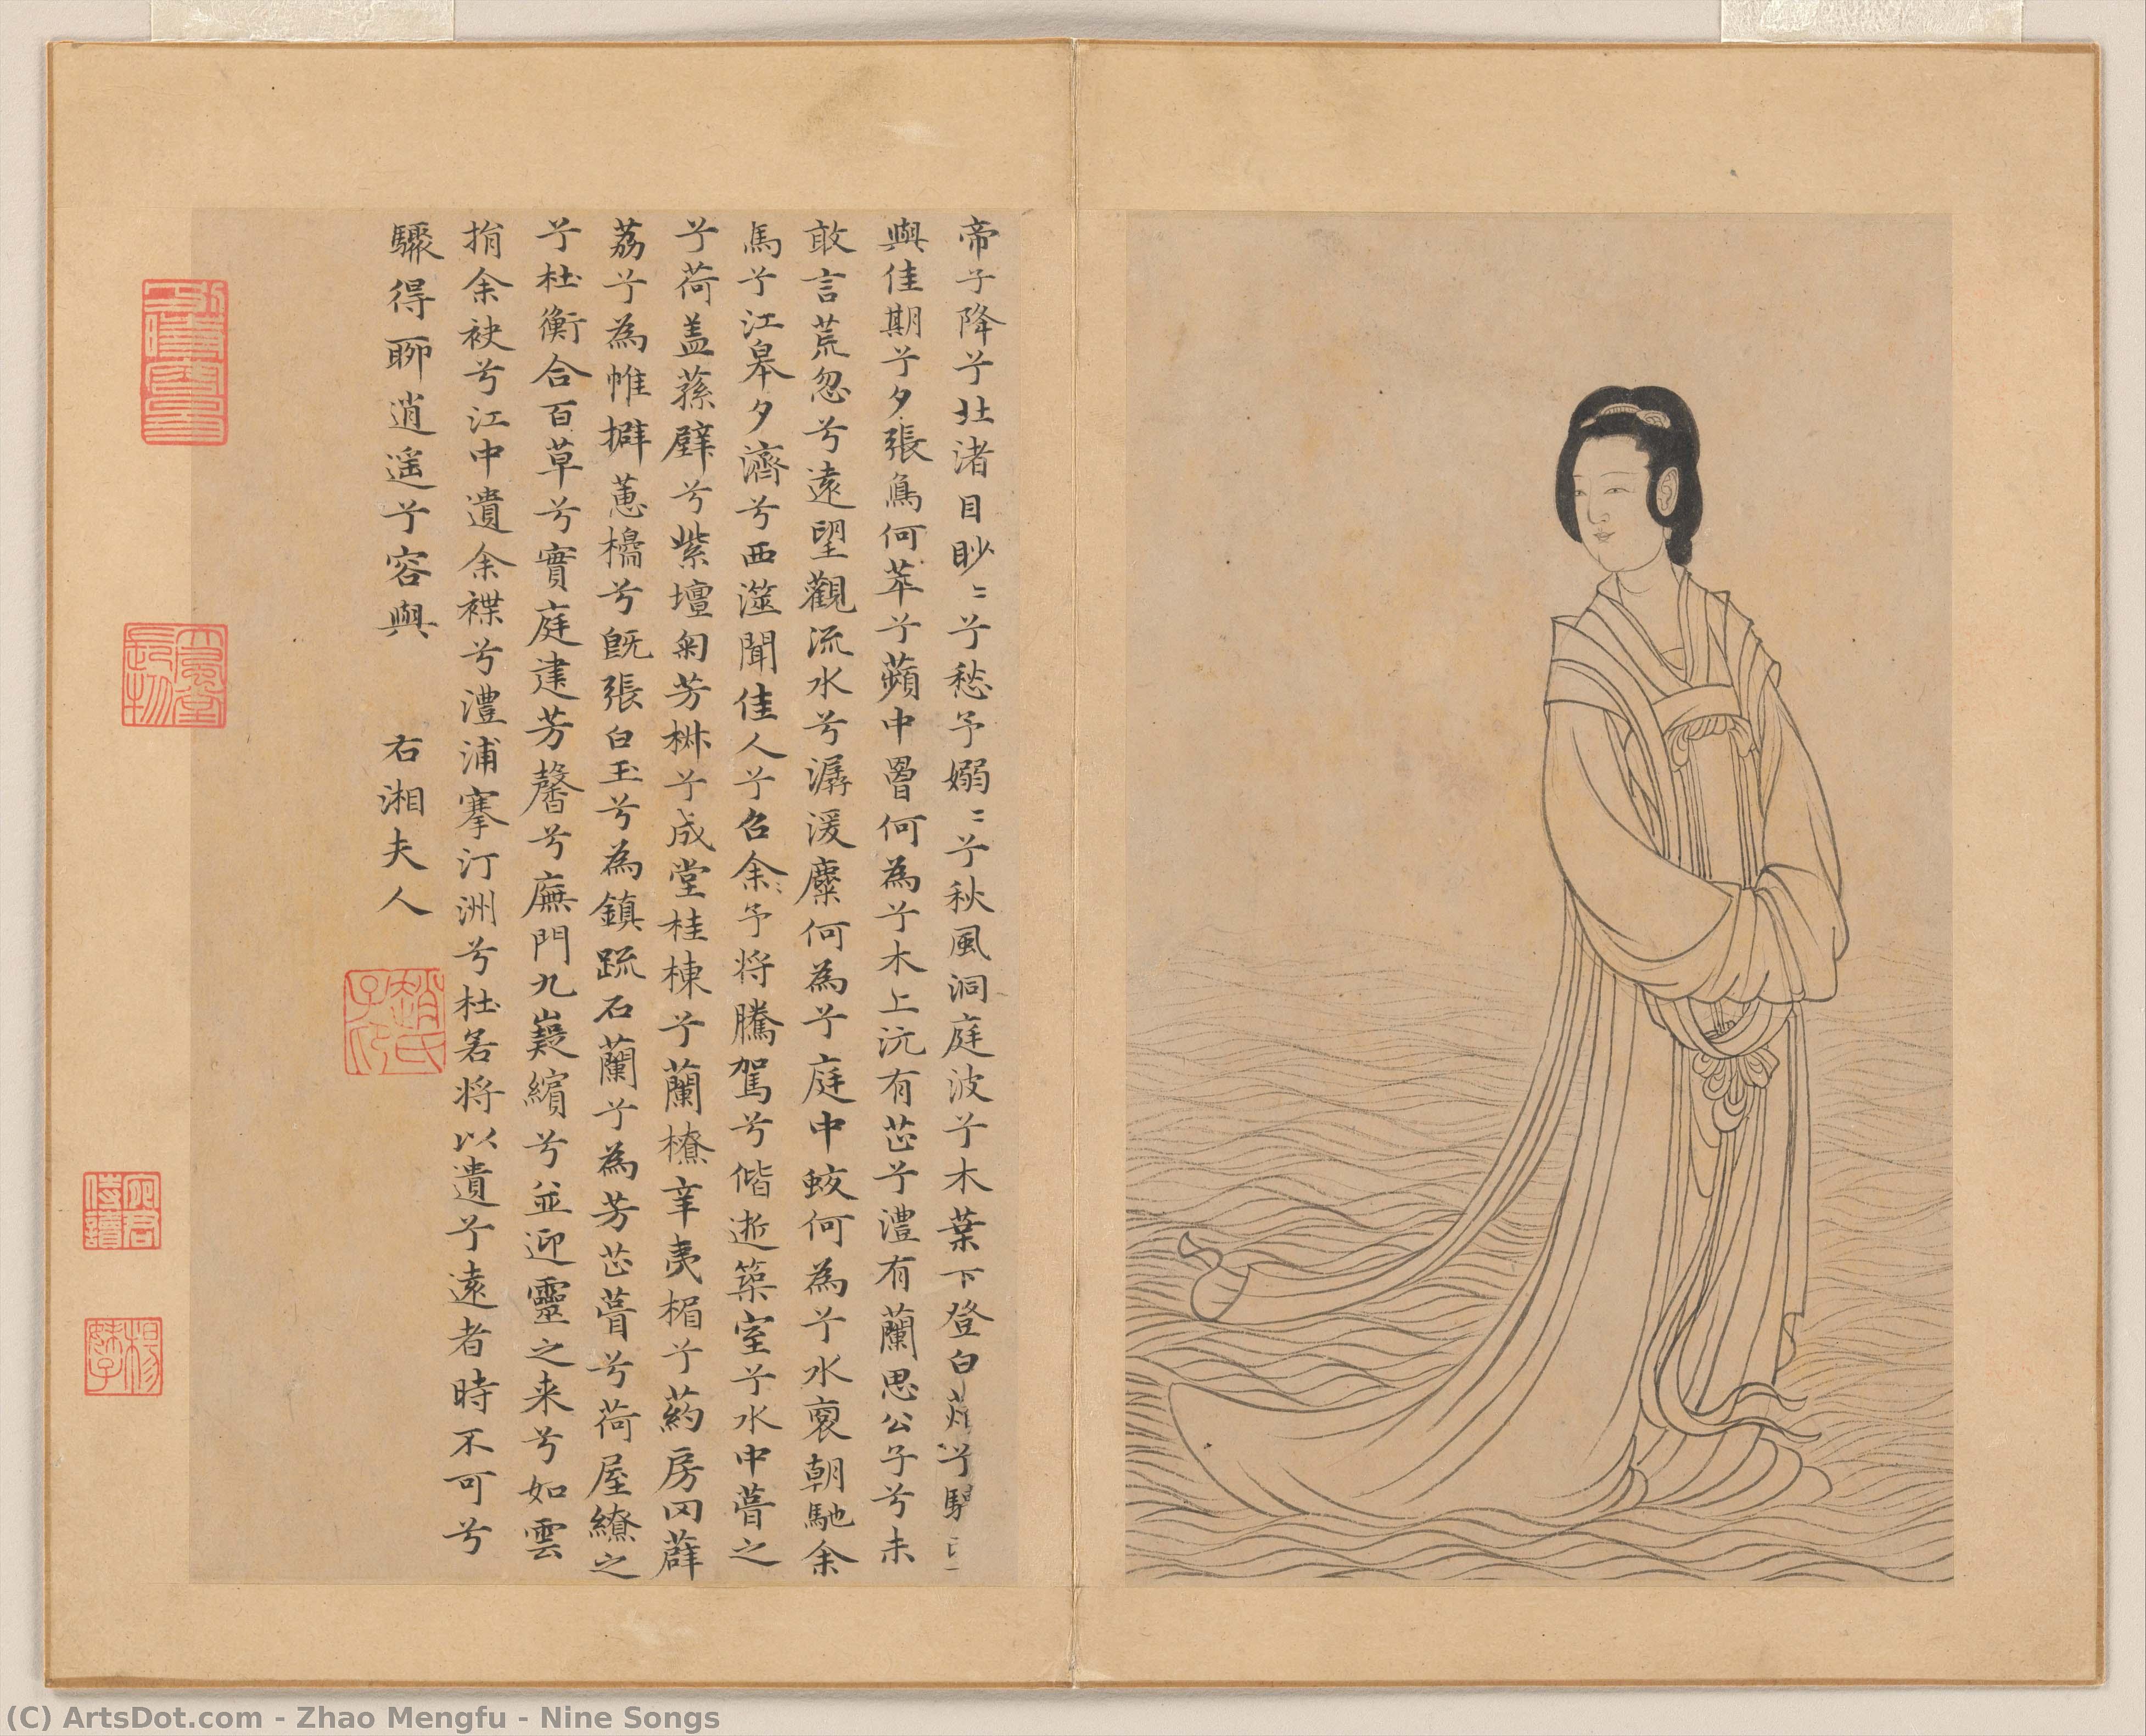 帝子降兮北渚目眇〻兮愁予嫋〻兮秋風洞庭波兮木葉下登白兮
與佳期兮夕張鳥何萃兮蘋中罾何為兮木上沅有芷兮澧有蘭思公子兮未
敢言荒忽兮遠望觀流水兮潺湲麋何為兮庭中蛟何為兮水裔朝馳余
馬兮江皋夕濟兮西澨聞佳人兮召余予将騰駕兮偕逝築室兮水中葺之
兮荷盖蓀壁兮紫壇匊芳椒兮成堂桂棟兮蘭橑辛夷楣兮葯房罔薜
荔兮為帷擗蕙櫋兮既張白玉兮為鎮疏石蘭兮為芳芷葺兮荷屋繚之
兮杜衡合百草兮實庭建芳馨兮廡門九嶷繽兮並迎靈之来兮如雲
捐余袂兮江中遺余褋兮澧浦搴汀洲兮杜若将以遺兮遠者時不可兮
驟得聊逍遥兮容與 右湘夫人
趙氏子昂
(C) ArtsDot.com - Zhao Mengfu - Nine Songs